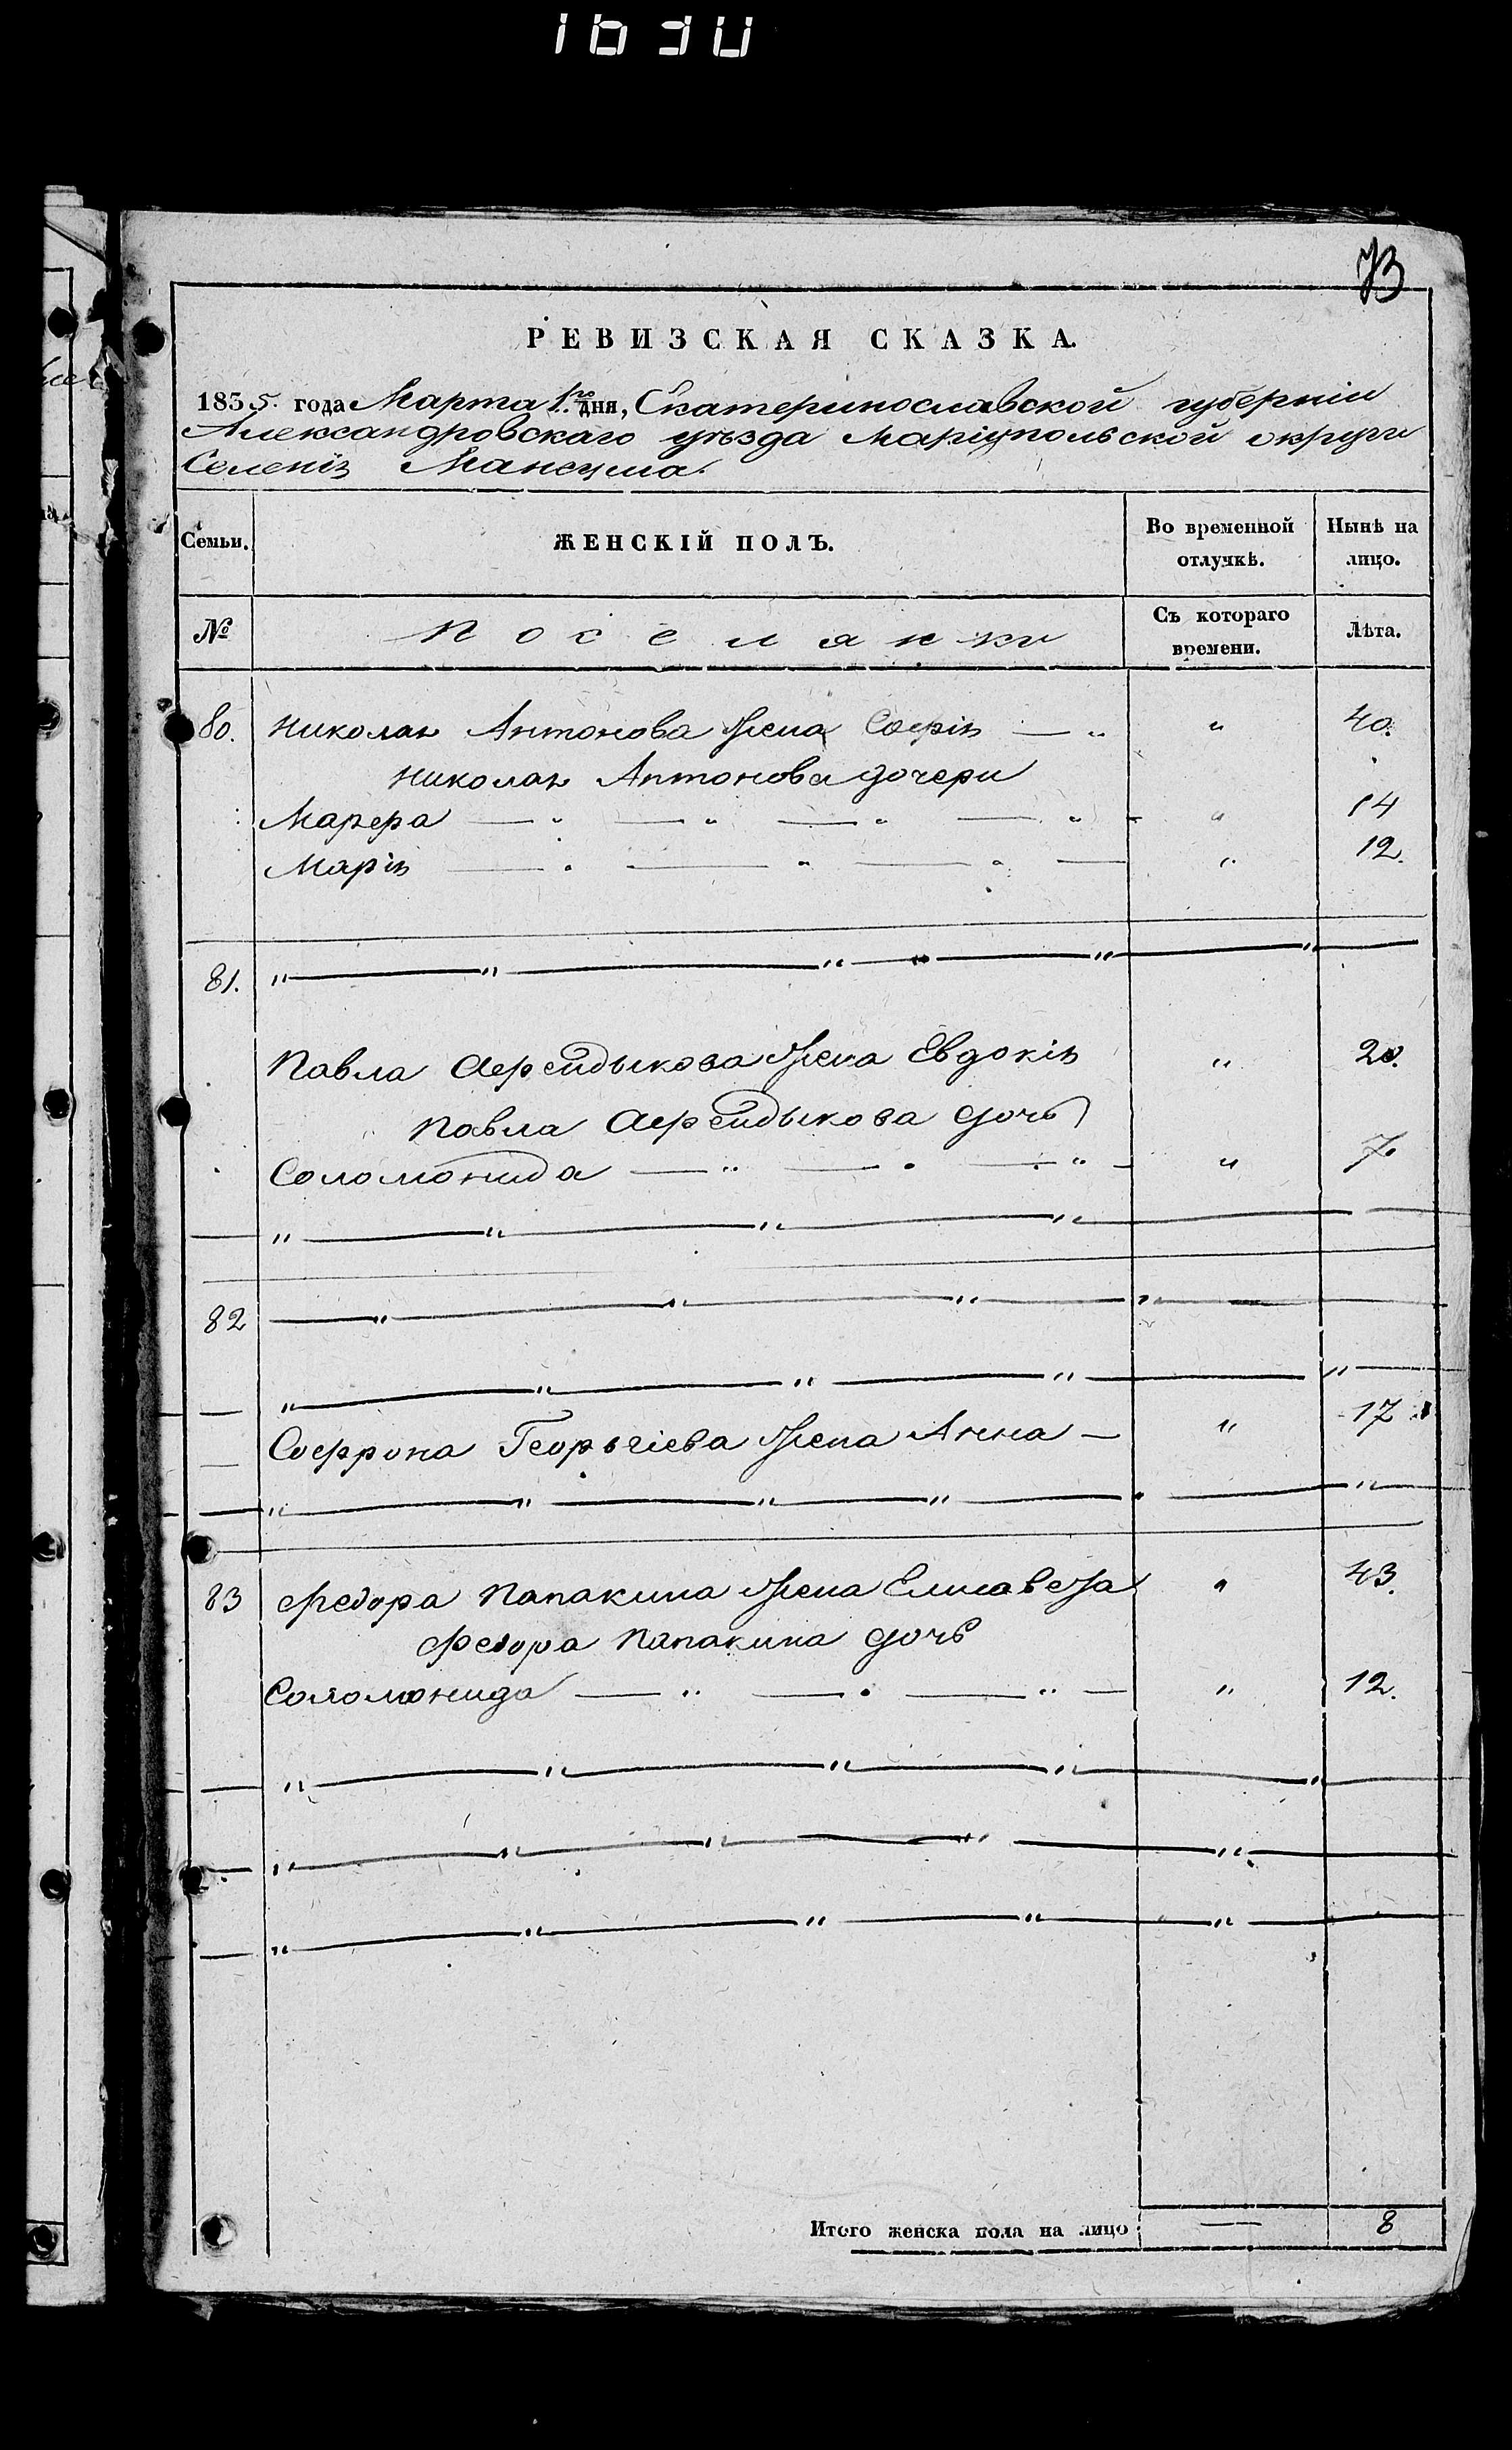 1630
73
РЕВИЗСКАЯ СКАЗКА.
1835. года Марта 1го дня, Екатеринославской губерніи
Александровскаго уѣзда Маріупольской округи
Селенія Мангуша.
Семьи. ЖЕНСКІЙ ПОЛЪ. Во временной отлучкѣ. Нынѣ на лицо.
№ Поселянки Съ котораго времени. Лѣта.
80. Николая Антонова жена Софія — " " 40.
Николая Антонова дочери
Марфра — " — " — " — " — " 14
Марія — " — " — " — " 12.
81. " — " — " — " — " —
Павла жена Евдокія " 20.
Павла дочь
Соломонида — " — " — " — " 7.
" — " — " — " —
82 — " — " — " — " —
" — " — " — " — " —
Софрона Георьгіева жена Анна — " 17
" — " — " — " — " — "
83 Федора Папакина жена Елисавета " 43.
Федора Папакина дочь
Соломонида — " — " — " — " 12.
" — " — " — " — " —
" — " — " — " — " —
" — " — " — " — " —
Итого женска пола на лицо — 8